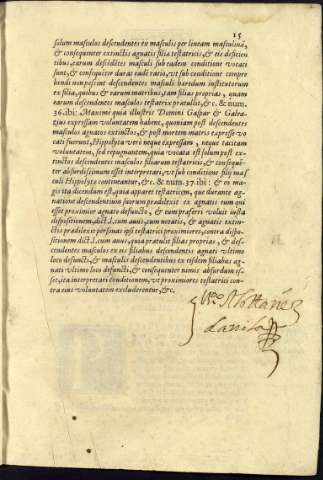 15
solum masculos descendentes ex masculis per lineam masculinã,
& consequenter extinctis agnatis filia testatricis, & eis deficien
tibus, earum descẽdẽtes masculi sub eadem conditione vocati
sunt, & consequitur duras eadē ratio, vt sub conditione compre
hendi non possint descendentes masculi haredum institutorum
ex filia, quibus & earum maritibus, tam filias proprias, quam
earum descendentes masculos testatrix praetulit, & c. & num.
36. ibi: Maxime quia illustris Domini Gaspar & Galea-
tius expressam voluntatem habent, quoniam post descendentes
masculos agnatos extinctos, & post mortem matris expresse vo
cati fuerunt, Hippolyta verò neque expressam, neque tacitam
voluntatem, sed repugnantem, quia vocata est solum post ex-
tinctos descendentes masculos filiarum testatricis, & consequẽ-
ter absurdissimum esset interpretari, vt sub conditione filij mas
culi Hippolytę contineantur, & c. & num. 37. ibi: & eo ma-
gis ita dicendum est, quia apparet testatricem, que durante ag-
natione descendentium suorum praedilexit ex agnatis eum qui
esset proximior agnato defuncto, & eum praeferri voluit iuxta
dispositionem, dict. l. cum auus, cum notatis, & agnatis extin-
ctis praedilexit personas ipsi testatrici proximiores, contra dispo-
sitionem dict. l. cum auus, quia praetulit filias proprias, & des-
cendentes masculos ex eis filiabus descendentis agnati vltimo
loco defuncti, & masculis descendentibus ex eisdem filiabus
agnati vltimo loco defuncti, & consequenter nimis absurdum es-
set, ita interpretari conditionem, vt proximiores testatrici con-
tra eius voluntatem excluderentur, & c.